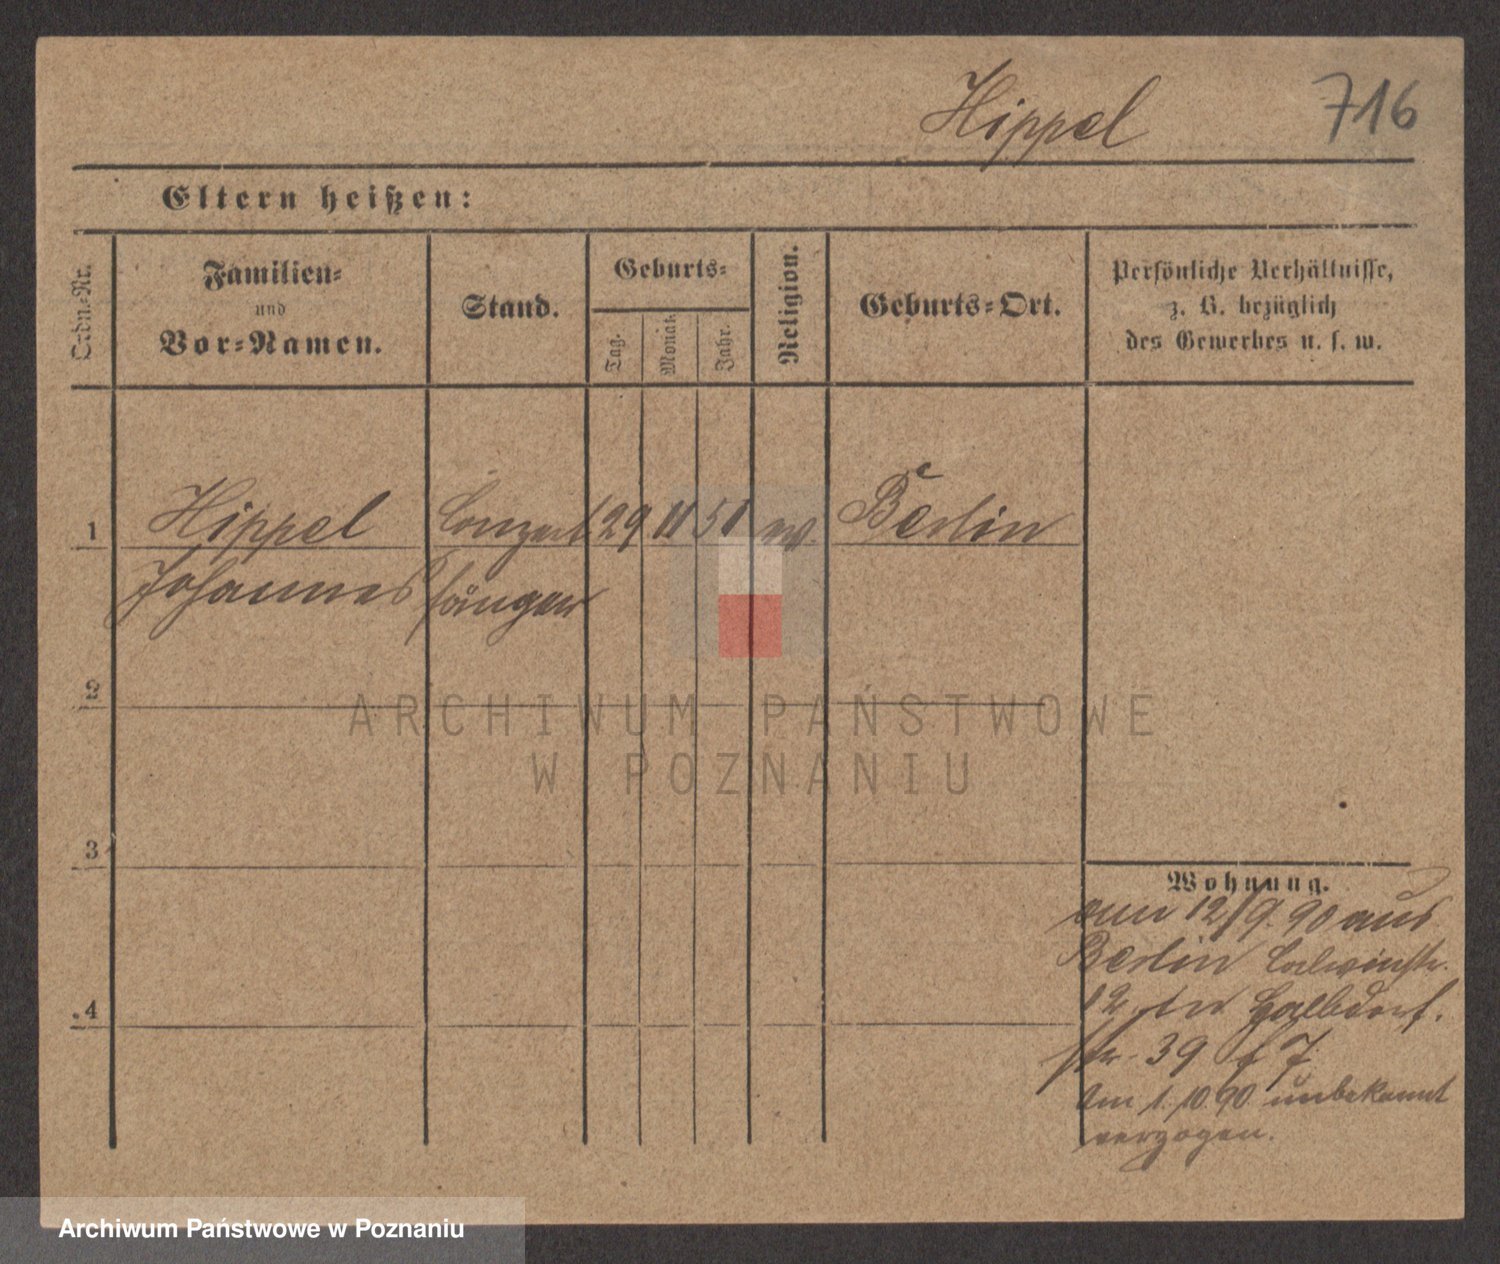 Hippel 716
Eltern heißen:
Ordn.=Nr.
Familien=
und
Vor=Namen.
Stand.
Geburts=
Tag.
Monat.
Jahr.
Religion.
Geburts=Ort.
Persönliche Verhältnisse,
z. B. bezüglich
des Gewerbes u. s. w.
1 Hippel Conzert 29 11 51 ev. Berlin
Johannes sänger
2
3
4
Wohnung.
am 12/9. 90 aus
Berlin Calvinstr.
12 Halbdorf.
str. 39 7
Am 1. 10. 90 unbekannt
verzogen.
ARCHIWUM PAŃSTWOWE
W POZNANIU
Archiwum Państwowe w Poznaniu